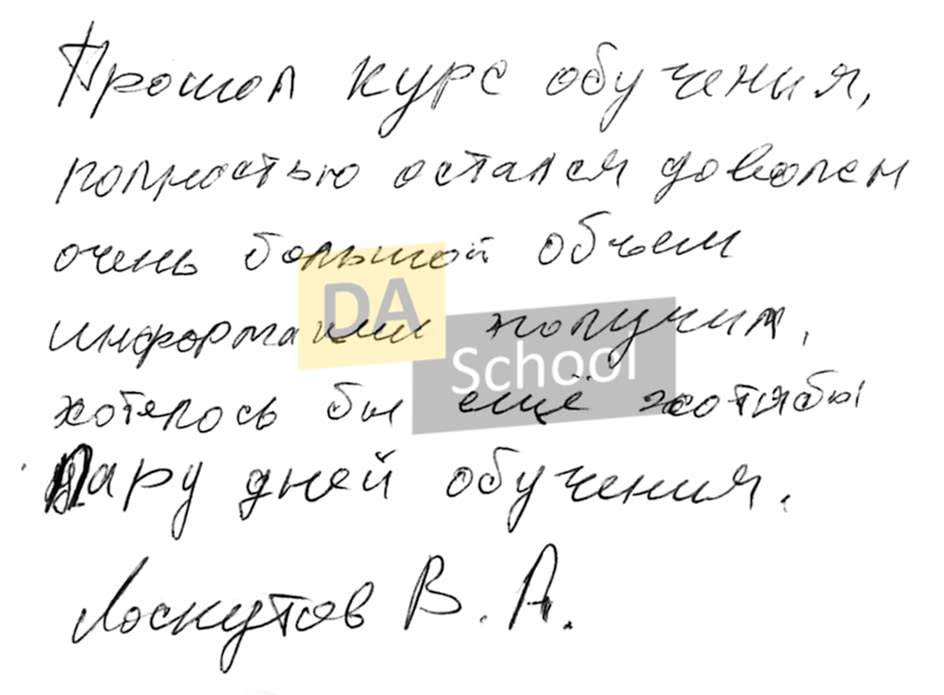 Прошол курс обучения,
полностью остался доволен
очень большой объем
информации получил,
хотелось бы ещё хотябы
пару дней обучения.
Лоскутов В. А.
DA
School